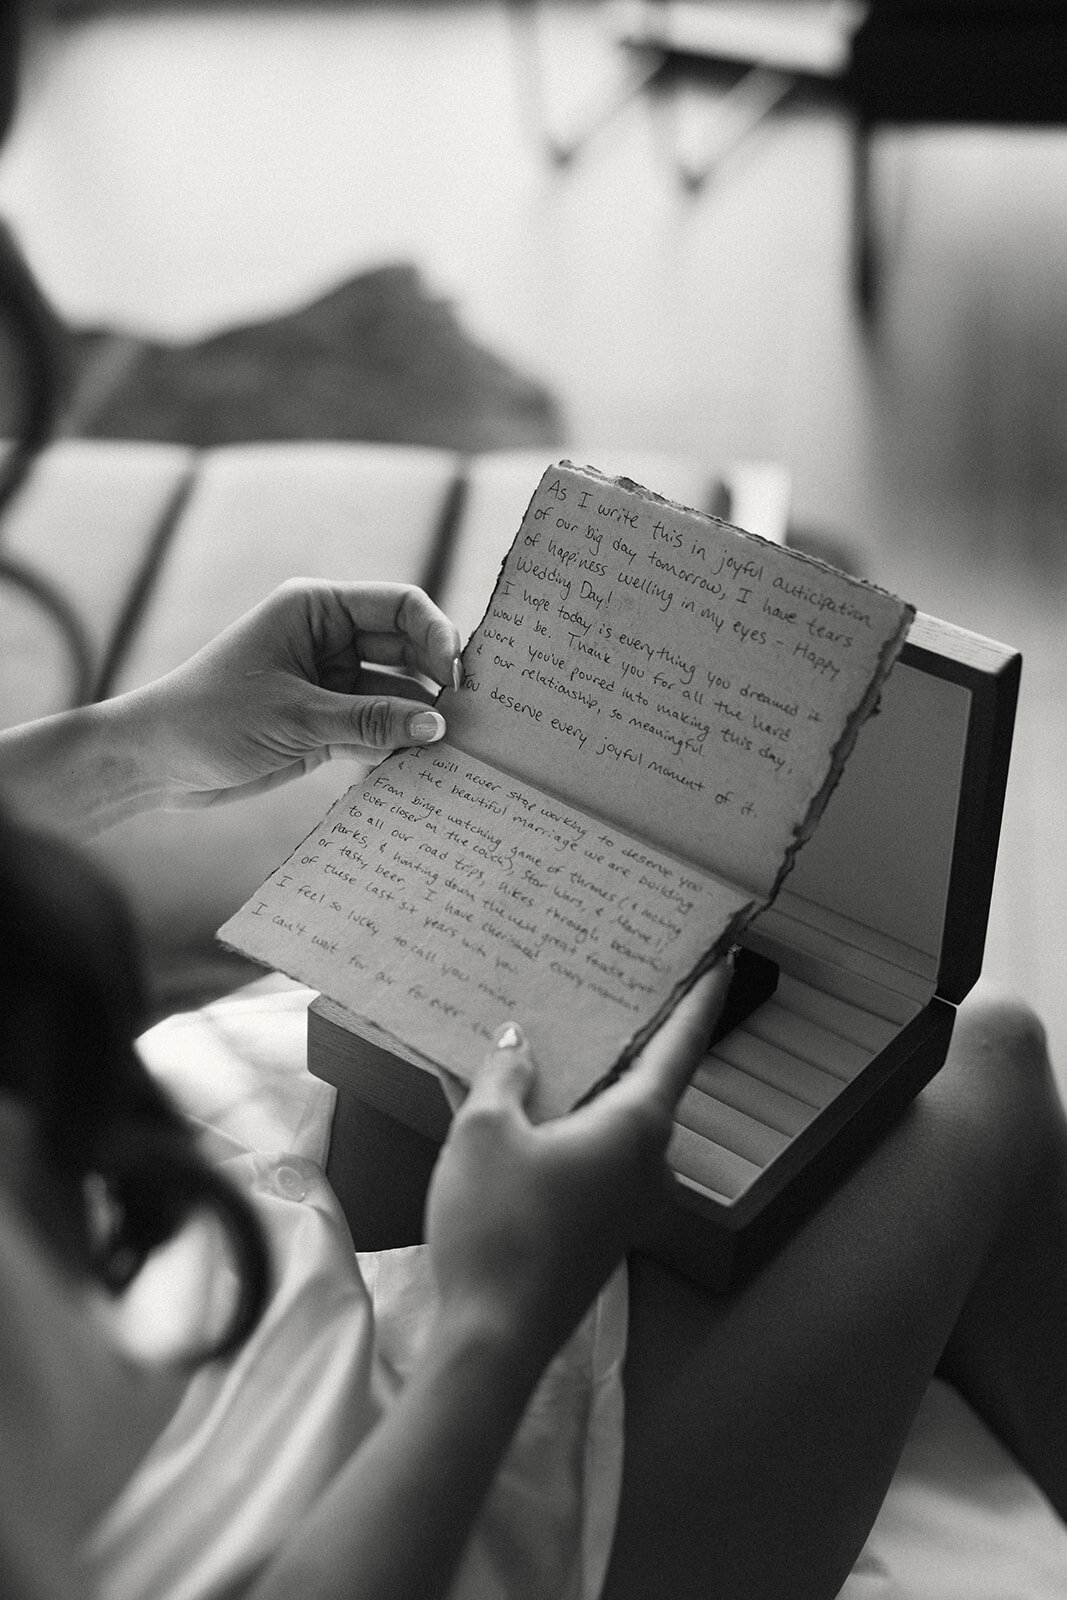 As I write this in joyful anticipation
of our big day tomorrow, I have tears
of happiness welling in my eyes - Happy
Wedding Day!
I hope today is everything you dreamed it
would be. Thank you for all the hard
work you've poured into making this day,
& our relationship, so meaningful.
You deserve every joyful moment of it.
I will never stop working to deserve you
& the beautiful marriage we are building
From binge watching game of thrones (& inching
ever closer on the couch), Star Wars, & Marvel,
to all our road trips, hikes through beautiful
parks, & hunting down the next great foodie spot
or tasty beer, I have cherished every moment
of these last six years with you.
I feel so lucky to call you mine
I can't wait for our forever